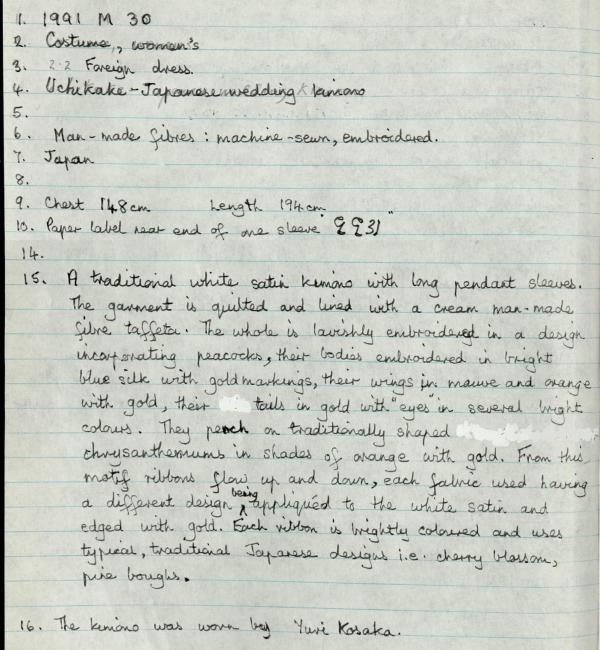 1. 1991 M 30
2. Costume, women's
3. 2.2 Foreign dress.
4. Uchikake - Japanese wedding kimono
5.
6. Man-made fibres : machine-sewn, embroidered.
7. Japan
8.
9. Chest 148cm Length 194cm.
10. Paper label near end of one sleeve "
14.
15. A traditional white satin kimono with long pendant sleeves.
The garment is quilted and lined with a cream man-made
fibre taffeta. The whole is lavishly embroidered in a design
incorporating peacocks, their bodies embroidered in bright
blue silk with gold markings, their wings in mauve and orange
with gold, their tails in gold with "eyes" in several bright
colours. They perch on traditionally shaped
chrysanthemums in shades of orange with gold. From this
motif ribbons flow up and down, each fabric used having
a different design being appliquéd to the white satin and
edged with gold. Each ribbon is brightly coloured and uses
typical, traditional Japanese designs i.e. cherry blossom,
pine boughs.
16. The kimono was worn by Yuri Kosaka.